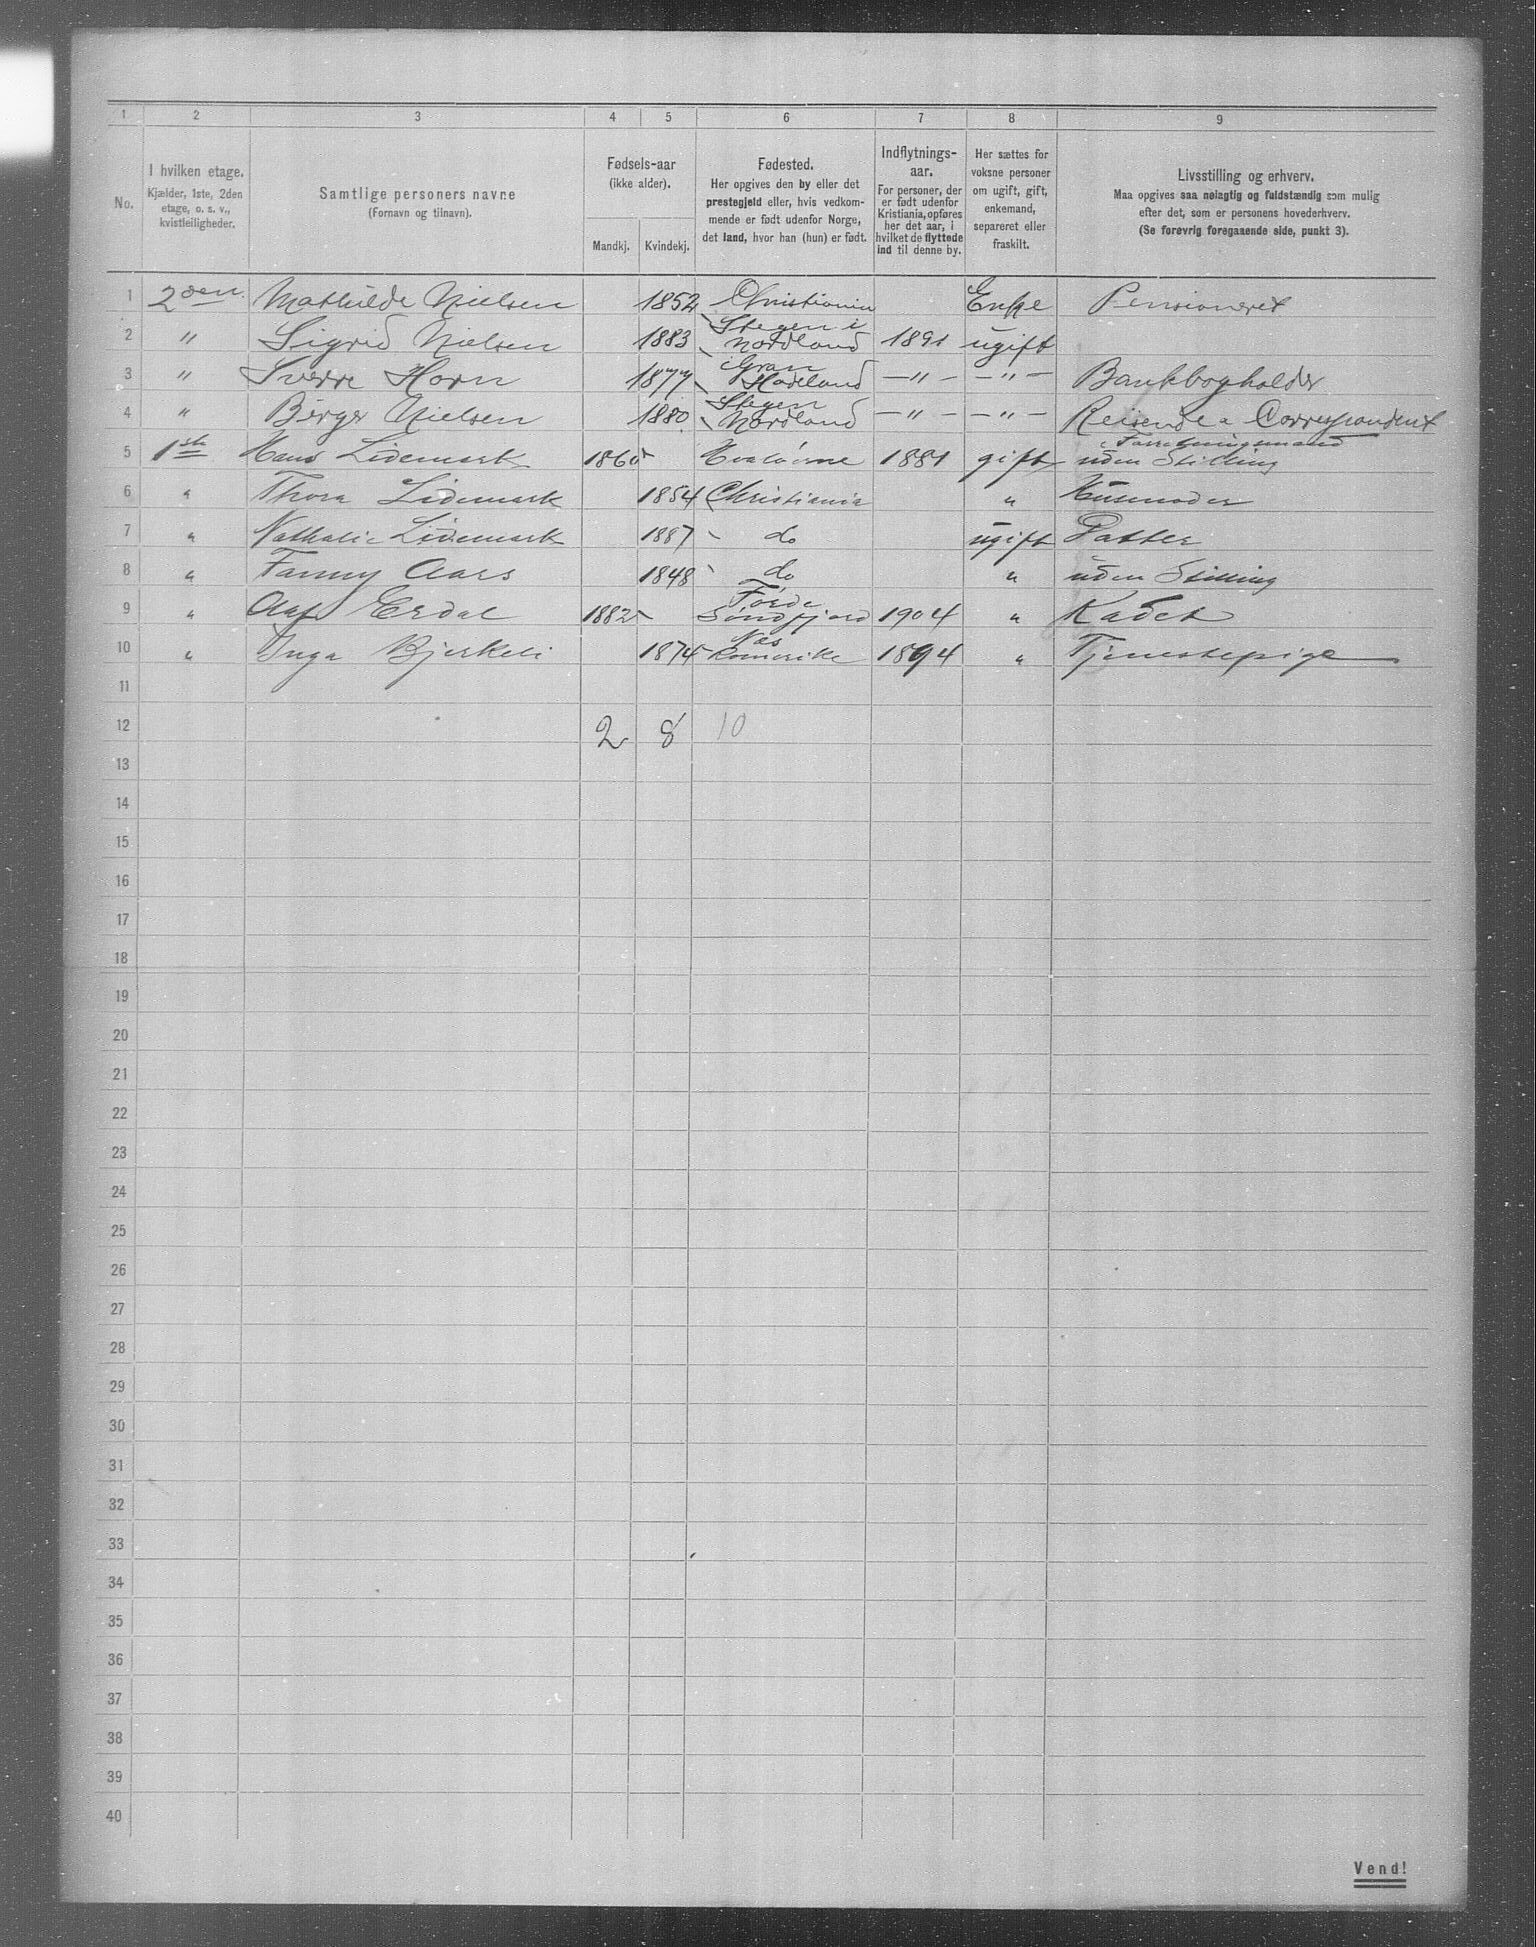 1 2 3 4 5 6 7 8 9
No.
I hvilken etage.
Kjælder, 1ste, 2den
etage, o. s. v.,
kvistleiligheder.
Samtlige personers navne
(Fornavn og tilnavn).
Fødsels-aar
(ikke alder).
Mandkj. Kvindekj.
Fødested.
Her opgives den by eller det
prestegjeld eller, hvis vedkom-
mende er født udenfor Norge,
det land, hvor han (hun) er født.
Indflytnings-
aar.
For personer, der
er født udenfor
Kristiania, opføres
her det aar, i
hvilket de flyttede
ind til denne by.
Her sættes for
voksne personer
om ugift, gift,
enkemand,
separeret eller
fraskilt.
Livsstilling og erhverv.
Maa opgives saa nøiagtig og fuldstændig som mulig
efter det, som er personens hovederhverv.
(Se forøvrig foregaaende side, punkt 3).
1 2den Mathilde Nielsen 1852 Christiania Enke Pensioneret
2 " Sigrid Nielsen 1883 Stegen i Nordland 1891 ugift
3 " Sverre Horn 1877 Gran Hadeland —"— —"— Bankbogholder
4 " Birger Nielsen 1880 Stegen Nordland —"— —"— Reisende & Correspondent
i Forretningsmand
5 1ste Hans Lidemark 1860 1881 gift uden Stilling
6 " Thora Lidemark 1854 Christiania " Husmoder
7 " Nathalie Lidemark 1887 do ugift Datter
8 " Fanny Aars 1848 do " uden Stilling
9 " Olaf Erdal 1882 Førde Søndfjord 1904 " Kadet
10 " Inga Bjerkeli 1874 Næs Romerike 1894 " Tjenestepige
11
12 2 8 10
13
14
15
16
17
18
19
20
21
22
23
24
25
26
27
28
29
30
31
32
33
34
35
36
37
38
39
40
Vend!